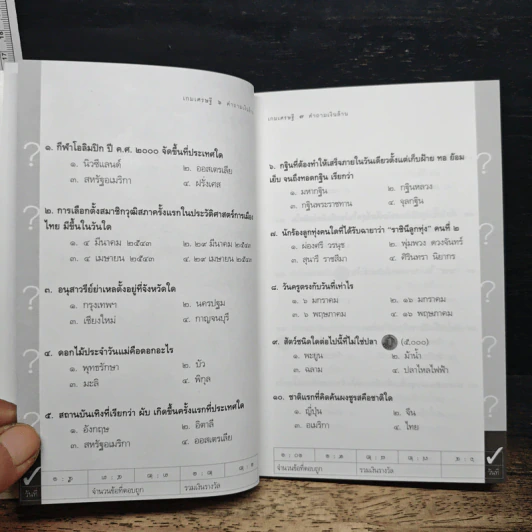 เกมเศรษฐี ๖ คำถามเงินล้าน
๑. กีฬาโอลิมปิก ปี ค.ศ. ๒๐๐๐ จัดขึ้นที่ประเทศใด
๑. นิวซีแลนด์ ๒. ออสเตรเลีย
๓. สหรัฐอเมริกา ๔. ฝรั่งเศส
๒. การเลือกตั้งสมาชิกวุฒิสภาครั้งแรกในประวัติศาสตร์การเมือง
ไทย มีขึ้นในวันใด
๑. ๔ มีนาคม ๒๕๔๓ ๒. ๒๙ มีนาคม ๒๕๔๓
๓. ๔ เมษายน ๒๕๔๓ ๔. ๒๙ เมษายน ๒๕๔๓
๓. อนุสาวรีย์ย่าเหลตั้งอยู่ที่จังหวัดใด
๑. กรุงเทพฯ ๒. นครปฐม
๓. เชียงใหม่ ๔. กาญจนบุรี
๔. ดอกไม้ประจำวันแม่คือดอกอะไร
๑. พุทธรักษา ๒. บัว
๓. มะลิ ๔. พิกุล
๕. สถานบันเทิงที่เรียกว่า ผับ เกิดขึ้นครั้งแรกที่ประเทศใด
๑. อังกฤษ ๒. อิตาลี
๓. สหรัฐอเมริกา ๔. ออสเตรเลีย
จำนวนข้อที่ตอบถูก รวมเงินรางวัล
วันที่
เกมเศรษฐี ๗ คำถามเงินล้าน
๖. กฐินที่ต้องทำให้เสร็จภายในวันเดียวตั้งแต่เก็บฝ้าย ทอ ย้อม
เย็บ จนถึงทอดกฐิน เรียกว่า
๑. มหากฐิน ๒. กฐินหลวง
๓. กฐินพระราชทาน ๔. จุลกฐิน
นักร้องลูกทุ่งคนใดที่ได้รับฉายาว่า "ราชินีลูกทุ่ง" คนที่ ๒
๑. ผ่องศรี วรนุช ๒. พุ่มพวง ดวงจันทร์
๓. สุนารี ราชสีมา ๔. ศิรินทรา นิยากร
๘. วันครูตรงกับวันที่เท่าไร
๑. ๖ มกราคม ๒. ๑๖ มกราคม
๓. ๖ พฤษภาคม ๔. ๑๖ พฤษภาคม
๙. สัตว์ชนิดใดต่อไปนี้ที่ไม่ใช่ปลา (๕,๐๐๐)
๑. พะยูน ๒. ม้าน้ำ
๓. ฉลาม ๔. ปลาไหลไฟฟ้า
๑๐. ชาติแรกที่คิดค้นผงชูรสคือชาติใด
๑. ญี่ปุ่น ๒. จีน
๓. อเมริกา ๔. ไทย
จำนวนข้อที่ตอบถูก รวมเงินรางวัล
วันที่